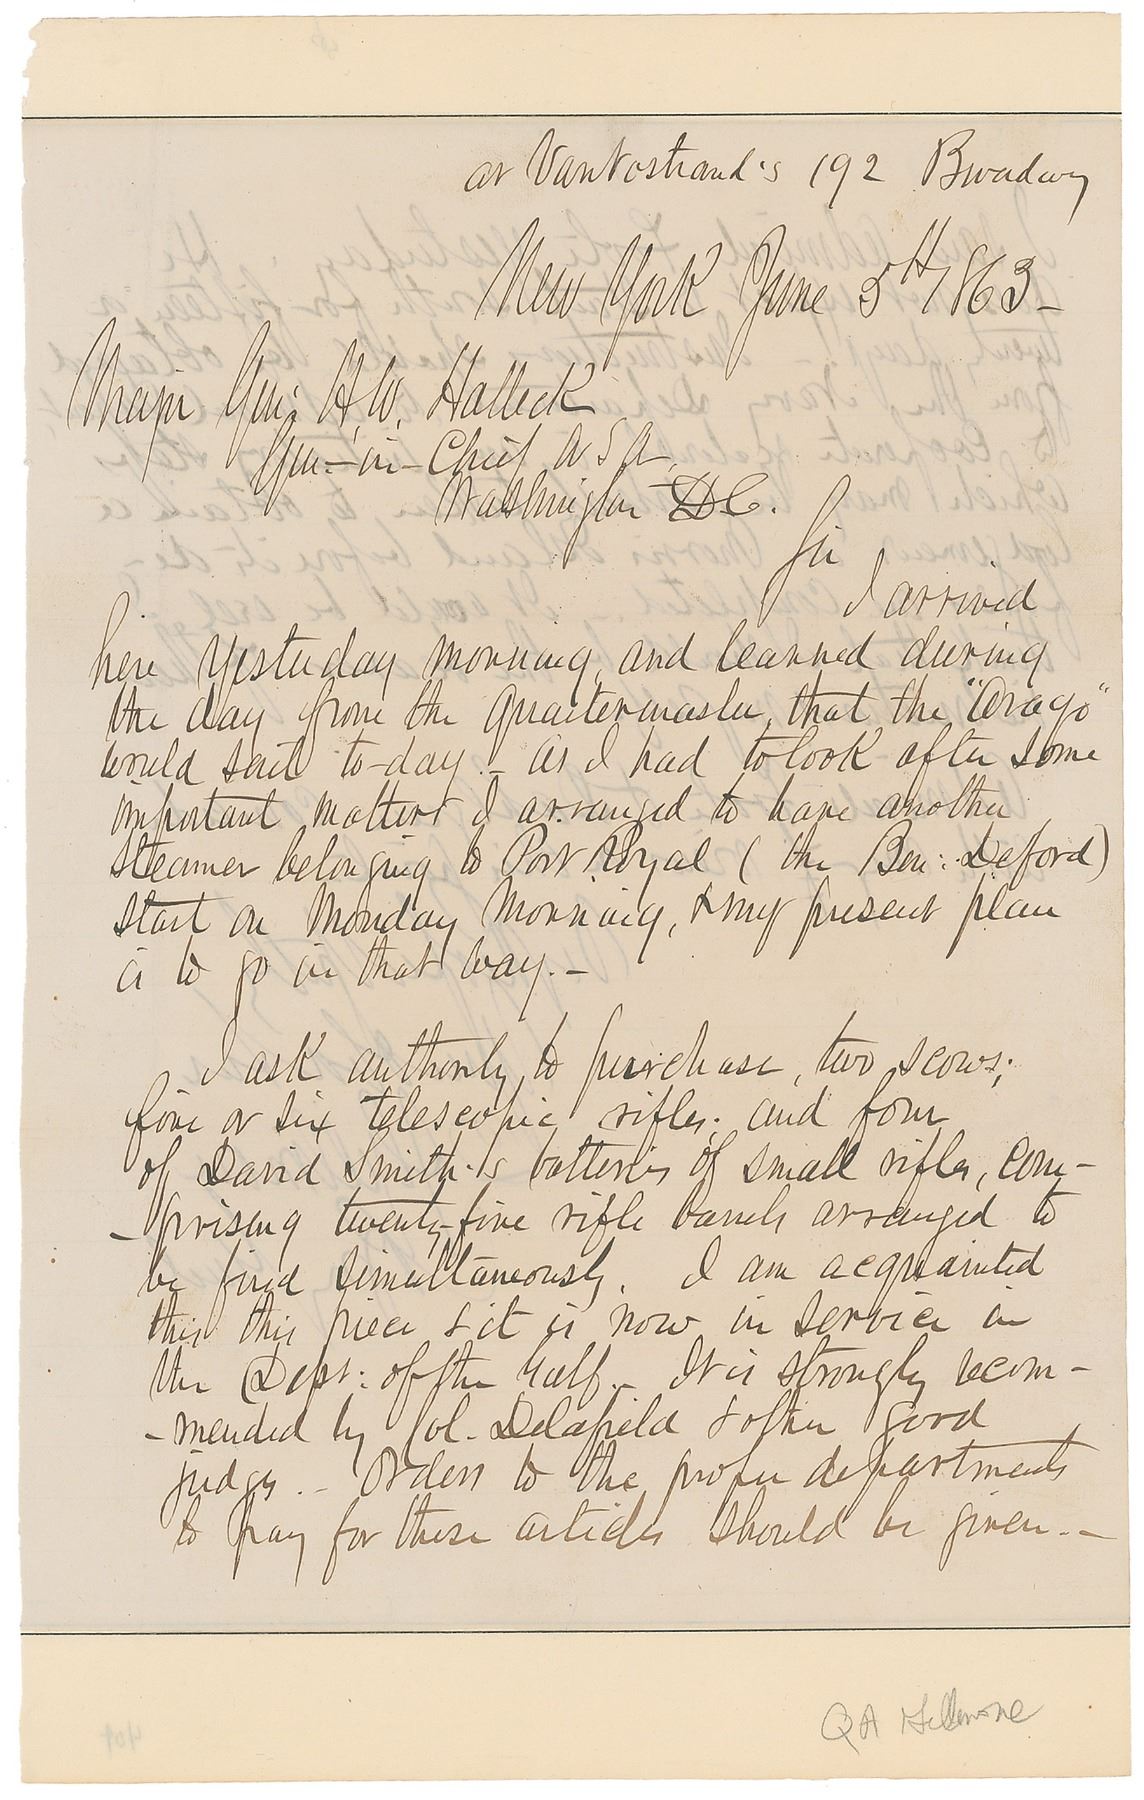 at VanNostrand's 192 Broadway
New York June 5th 1863 -
Major Gen: H. W. Halleck
Gen-in-Chief U S A.
Washington D.C.
Sir
I arrived
here yesterday morning, and learned during
the day from the Quartermaster, that the "Arago"
would sail to-day - As I had to look after some
important matters I arranged to have another
steamer belonging to Port Royal ( the Ben: Deford)
start on Monday Morning, & my present plan
is to go in that way. -
I ask authority to purchase, two scows;
five or six telescopic rifles; and four
of David Smith's batteries of small rifles, com-
- prising twenty-five rifle barrels arranged to
be fired simultaneously. I am acquainted
this this piece & it is now in service in
the Dept: of the Gulf. It is strongly recom-
- mended by Col. Delafield & other good
judges. - Orders to the proper departments
to pay for these articles should be given. -
Q A Gillmore